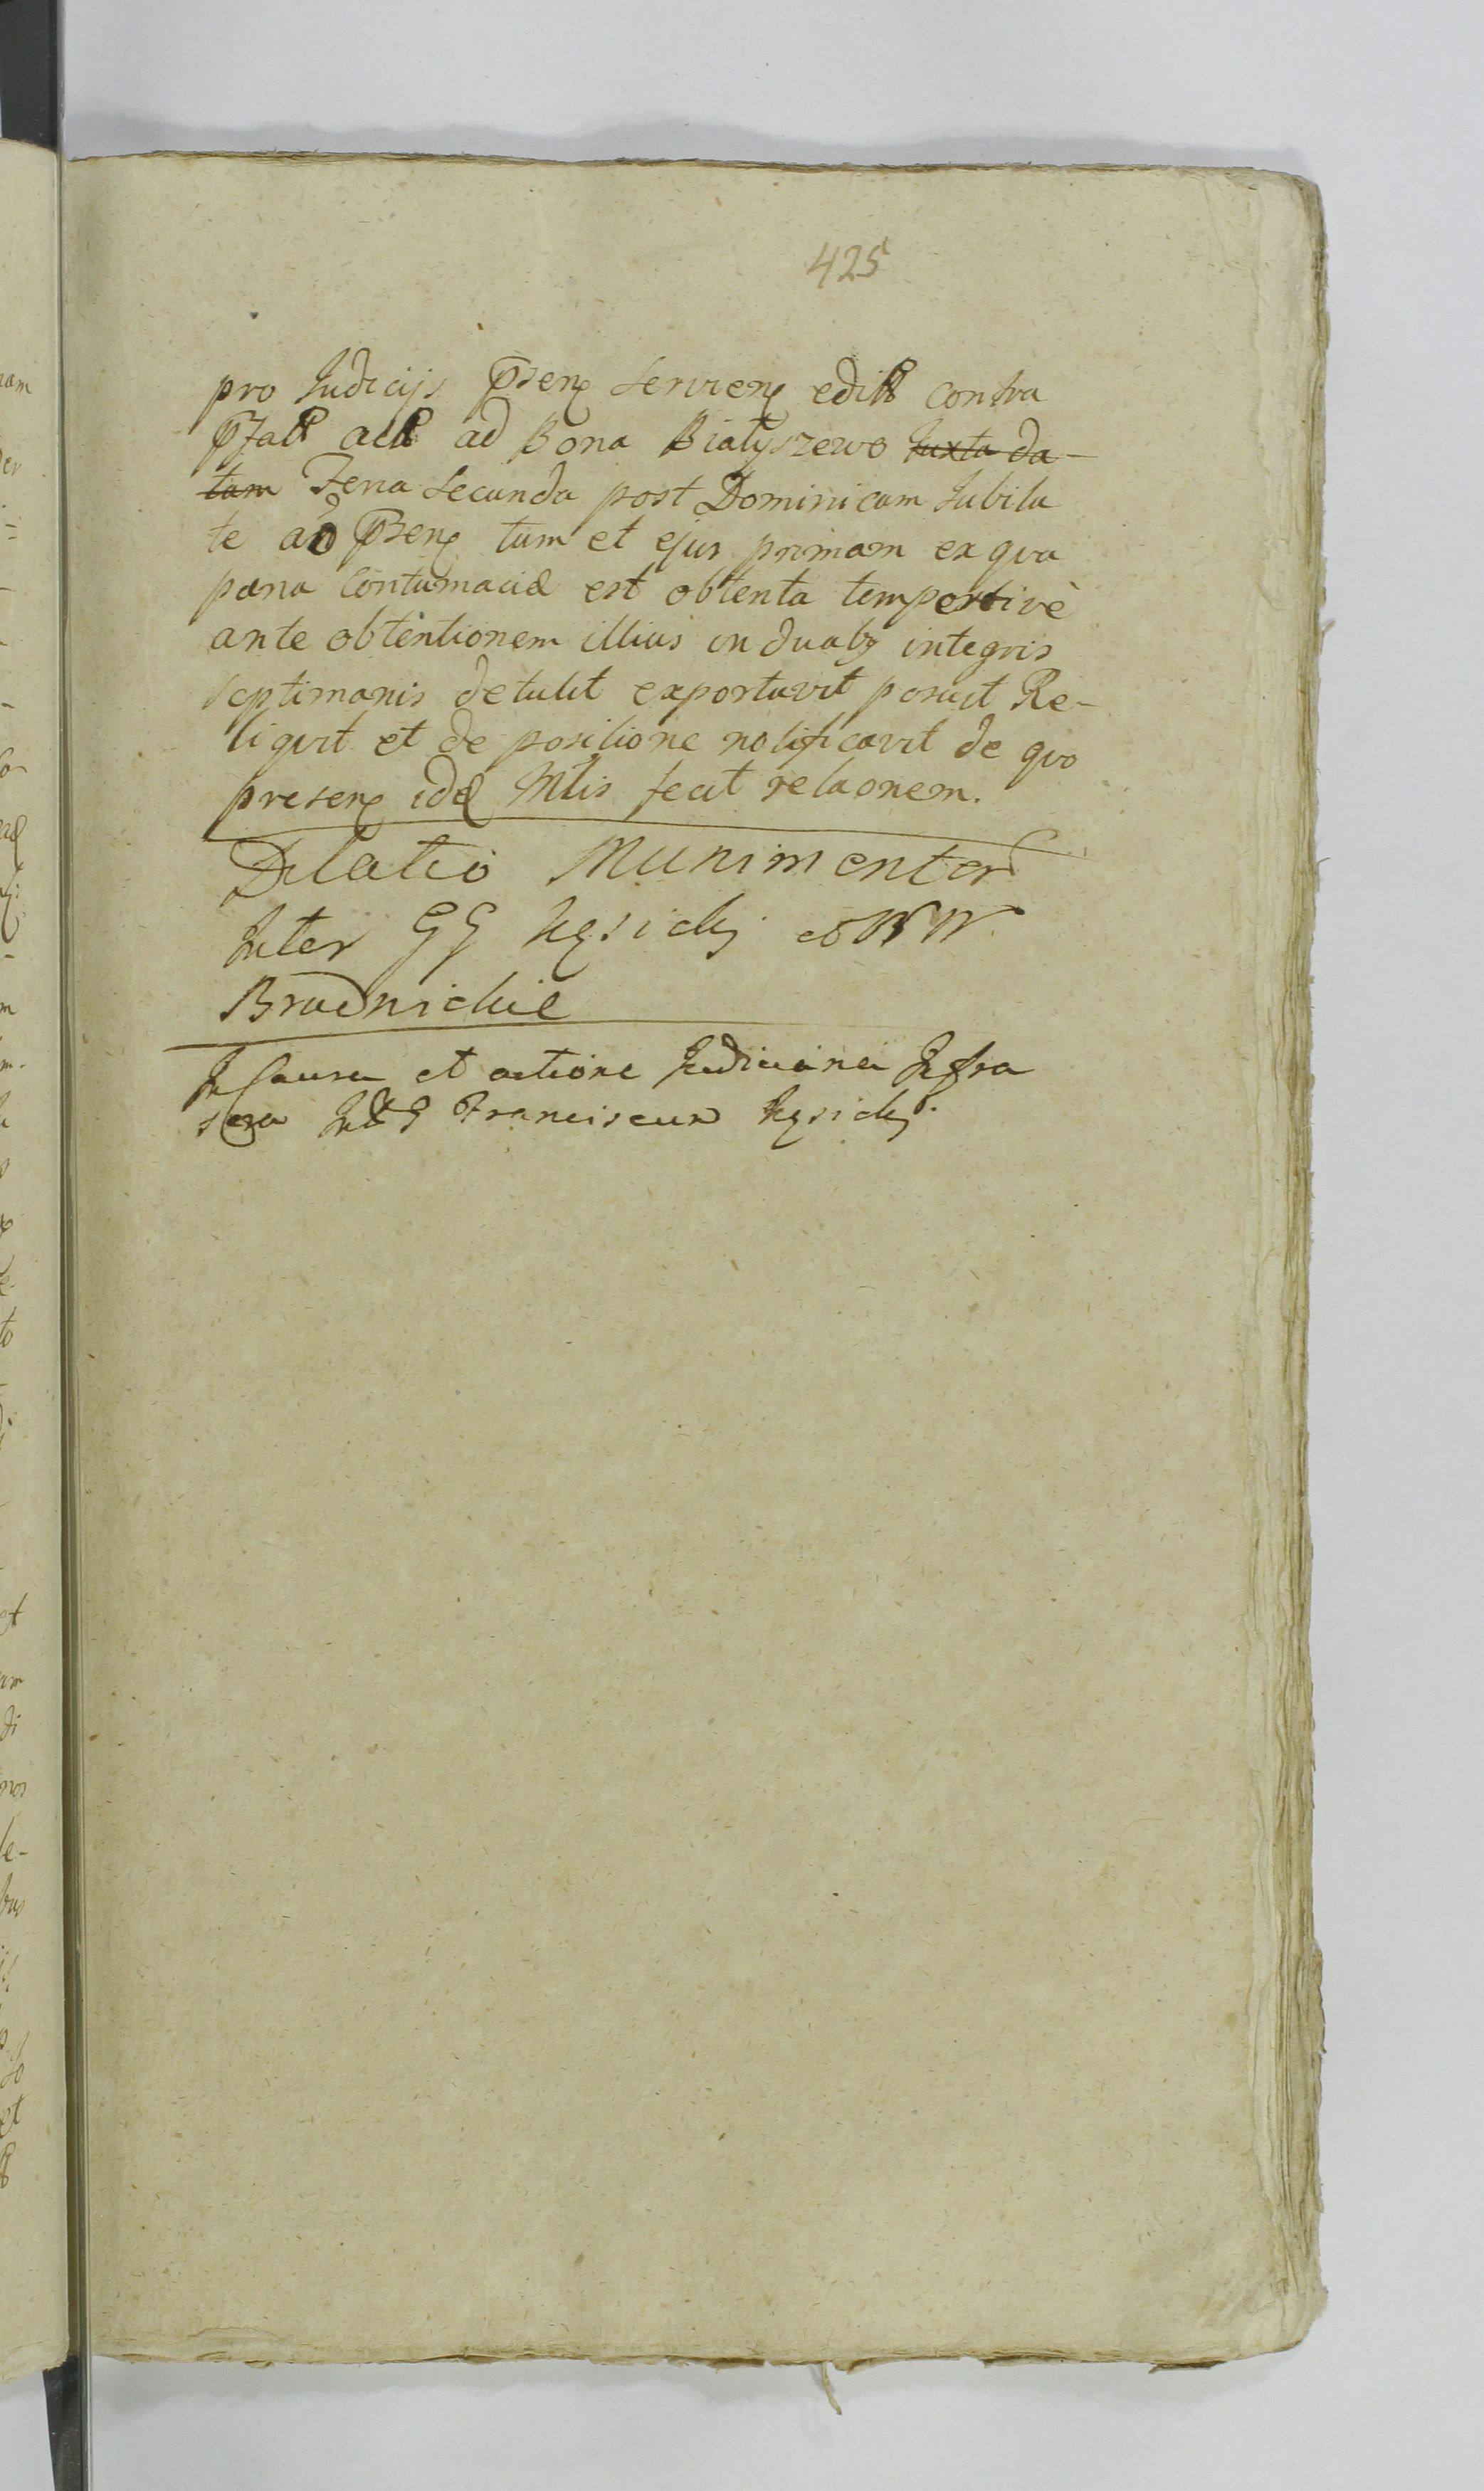 425
pro Judicijs pseñ servieñ edikt contra
pfalt act ad Bona Białyszewo Juxta da-
tam Feria Secunda post Dominicam Jubila
te ad pseñ tum et ejus primam ex qua
pæna Contumaciæ est obtenta tempestivè
ante obtentionem illius in duabq integris
septimanis detulit exportavit posuit Re-
liquit et de positione notificavit de quo
preseñ idē Mtis fecit relaonem.
Dilatio Munimentor
Inter GG Kęsicki et WW
Brudnickie
In Causa et actione Judiciaria Infra
scra Inter G Franciscum Kęsicki